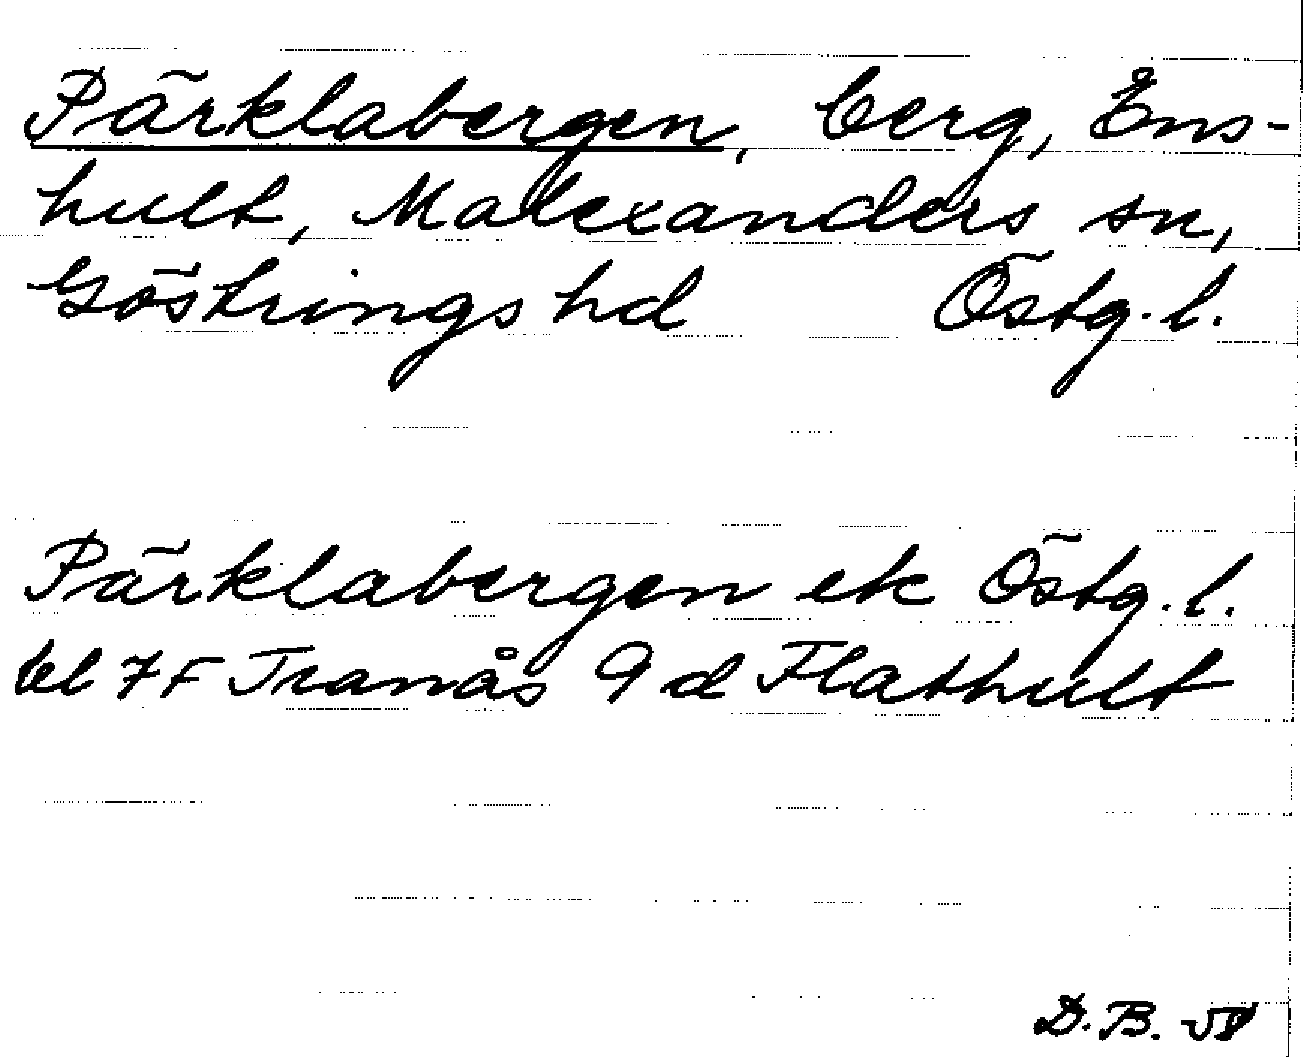 Pärklabergen, berg, Ens-
hult, Malexanders sn,
Göstrings hd Östg. l.
Pärklabergen ek Östg. l.
bl 7F Tranås 9 d Flathult
D. B.